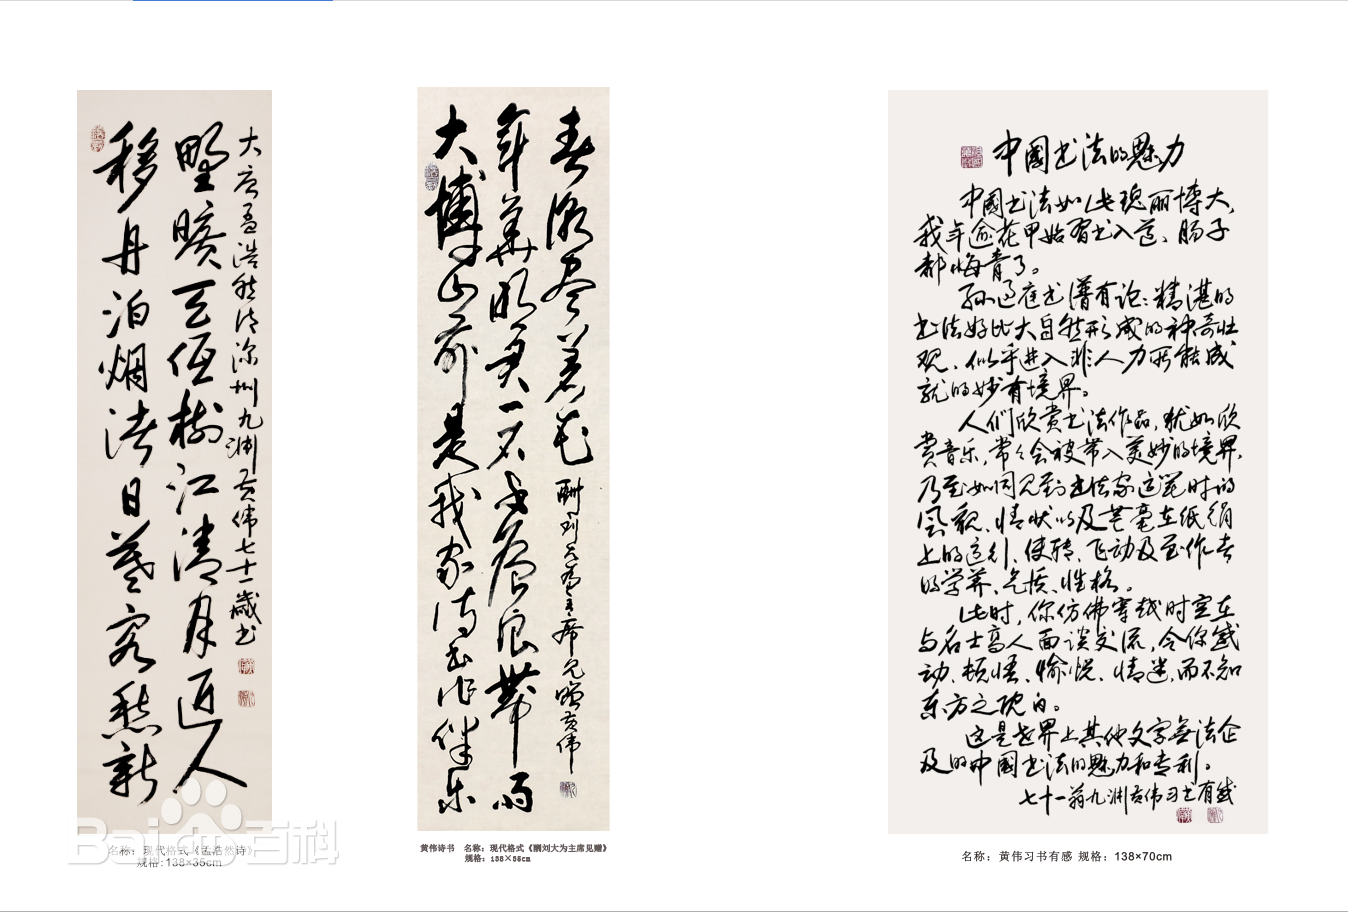 移舟泊烟渚日暮客愁新
野曠天低树江清月近人
大唐孟浩然诗深圳九渊黄伟七十一歲书
名称：现代格式《孟浩然诗》
规格:138×35cm
Bai 百科
大博山前是我家诗书作伴乐
年華明君一
春潮尽着花
酬刘大为主席见赠黄伟
黄伟诗书 名称：现代格式《酬刘大为主席见赠》
规格：138×35cm
中國书法的魅力
中國书法如此瑰丽博大，
我年逾花甲始習书入道、肠子
都悔青了。
孙过庭书谱有论：精湛的
书法好比大自然形成的神奇壮
观、似乎进入非人力所能成
就的妙有境界。
人们欣赏书法作品，犹如欣
赏音乐，常々会被带入美妙的境界，
乃至如同见到书法家运笔时的
風貌、情状以及笔毫在纸绢
上的运行、使转、飞动及至作者
的学养、气质、性格。
此时，你仿佛穿越时空在
与名士高人面谈交流，令你感
动、顿悟、愉悦、情迷，而不知
东方之既白。
这是世界上其他文字無法企
及的中國书法的魅力和专利。
七十一翁九渊黄伟习书有感
名称：黄伟习书有感 规格：138×70cm